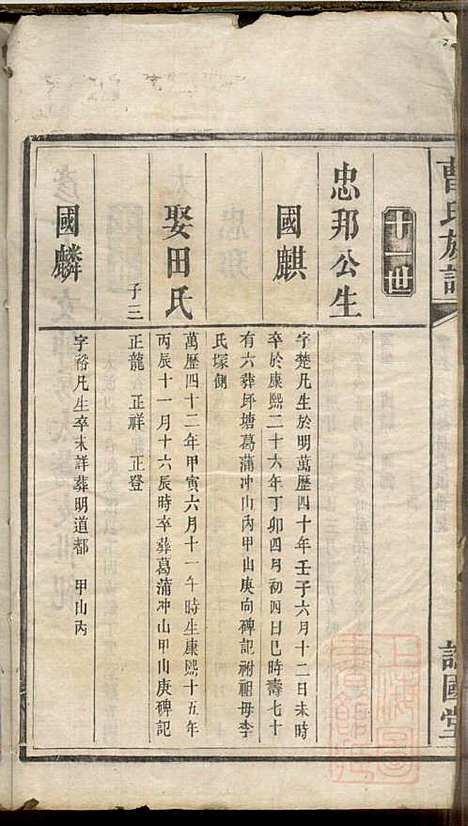 曹氏族譜
譜國堂
十一世
忠邦公生
國麒
字楚凡生於明萬歷四十年壬子六月十二日未時
卒於康熙二十六年丁卯四月初四日巳時壽七十
有六葬坪塘葛蒲冲山內甲山庚向碑記祔祖母李
氏塚側
娶田氏
萬歷四十二年甲寅六月十一午時生康熙十五年
丙辰十一月十六辰時卒葬葛蒲冲山甲山庚碑記
子三
正龍 正祥 正登
國麟
字裕凡生卒未詳葬明道都 甲山內
上海圖書館藏